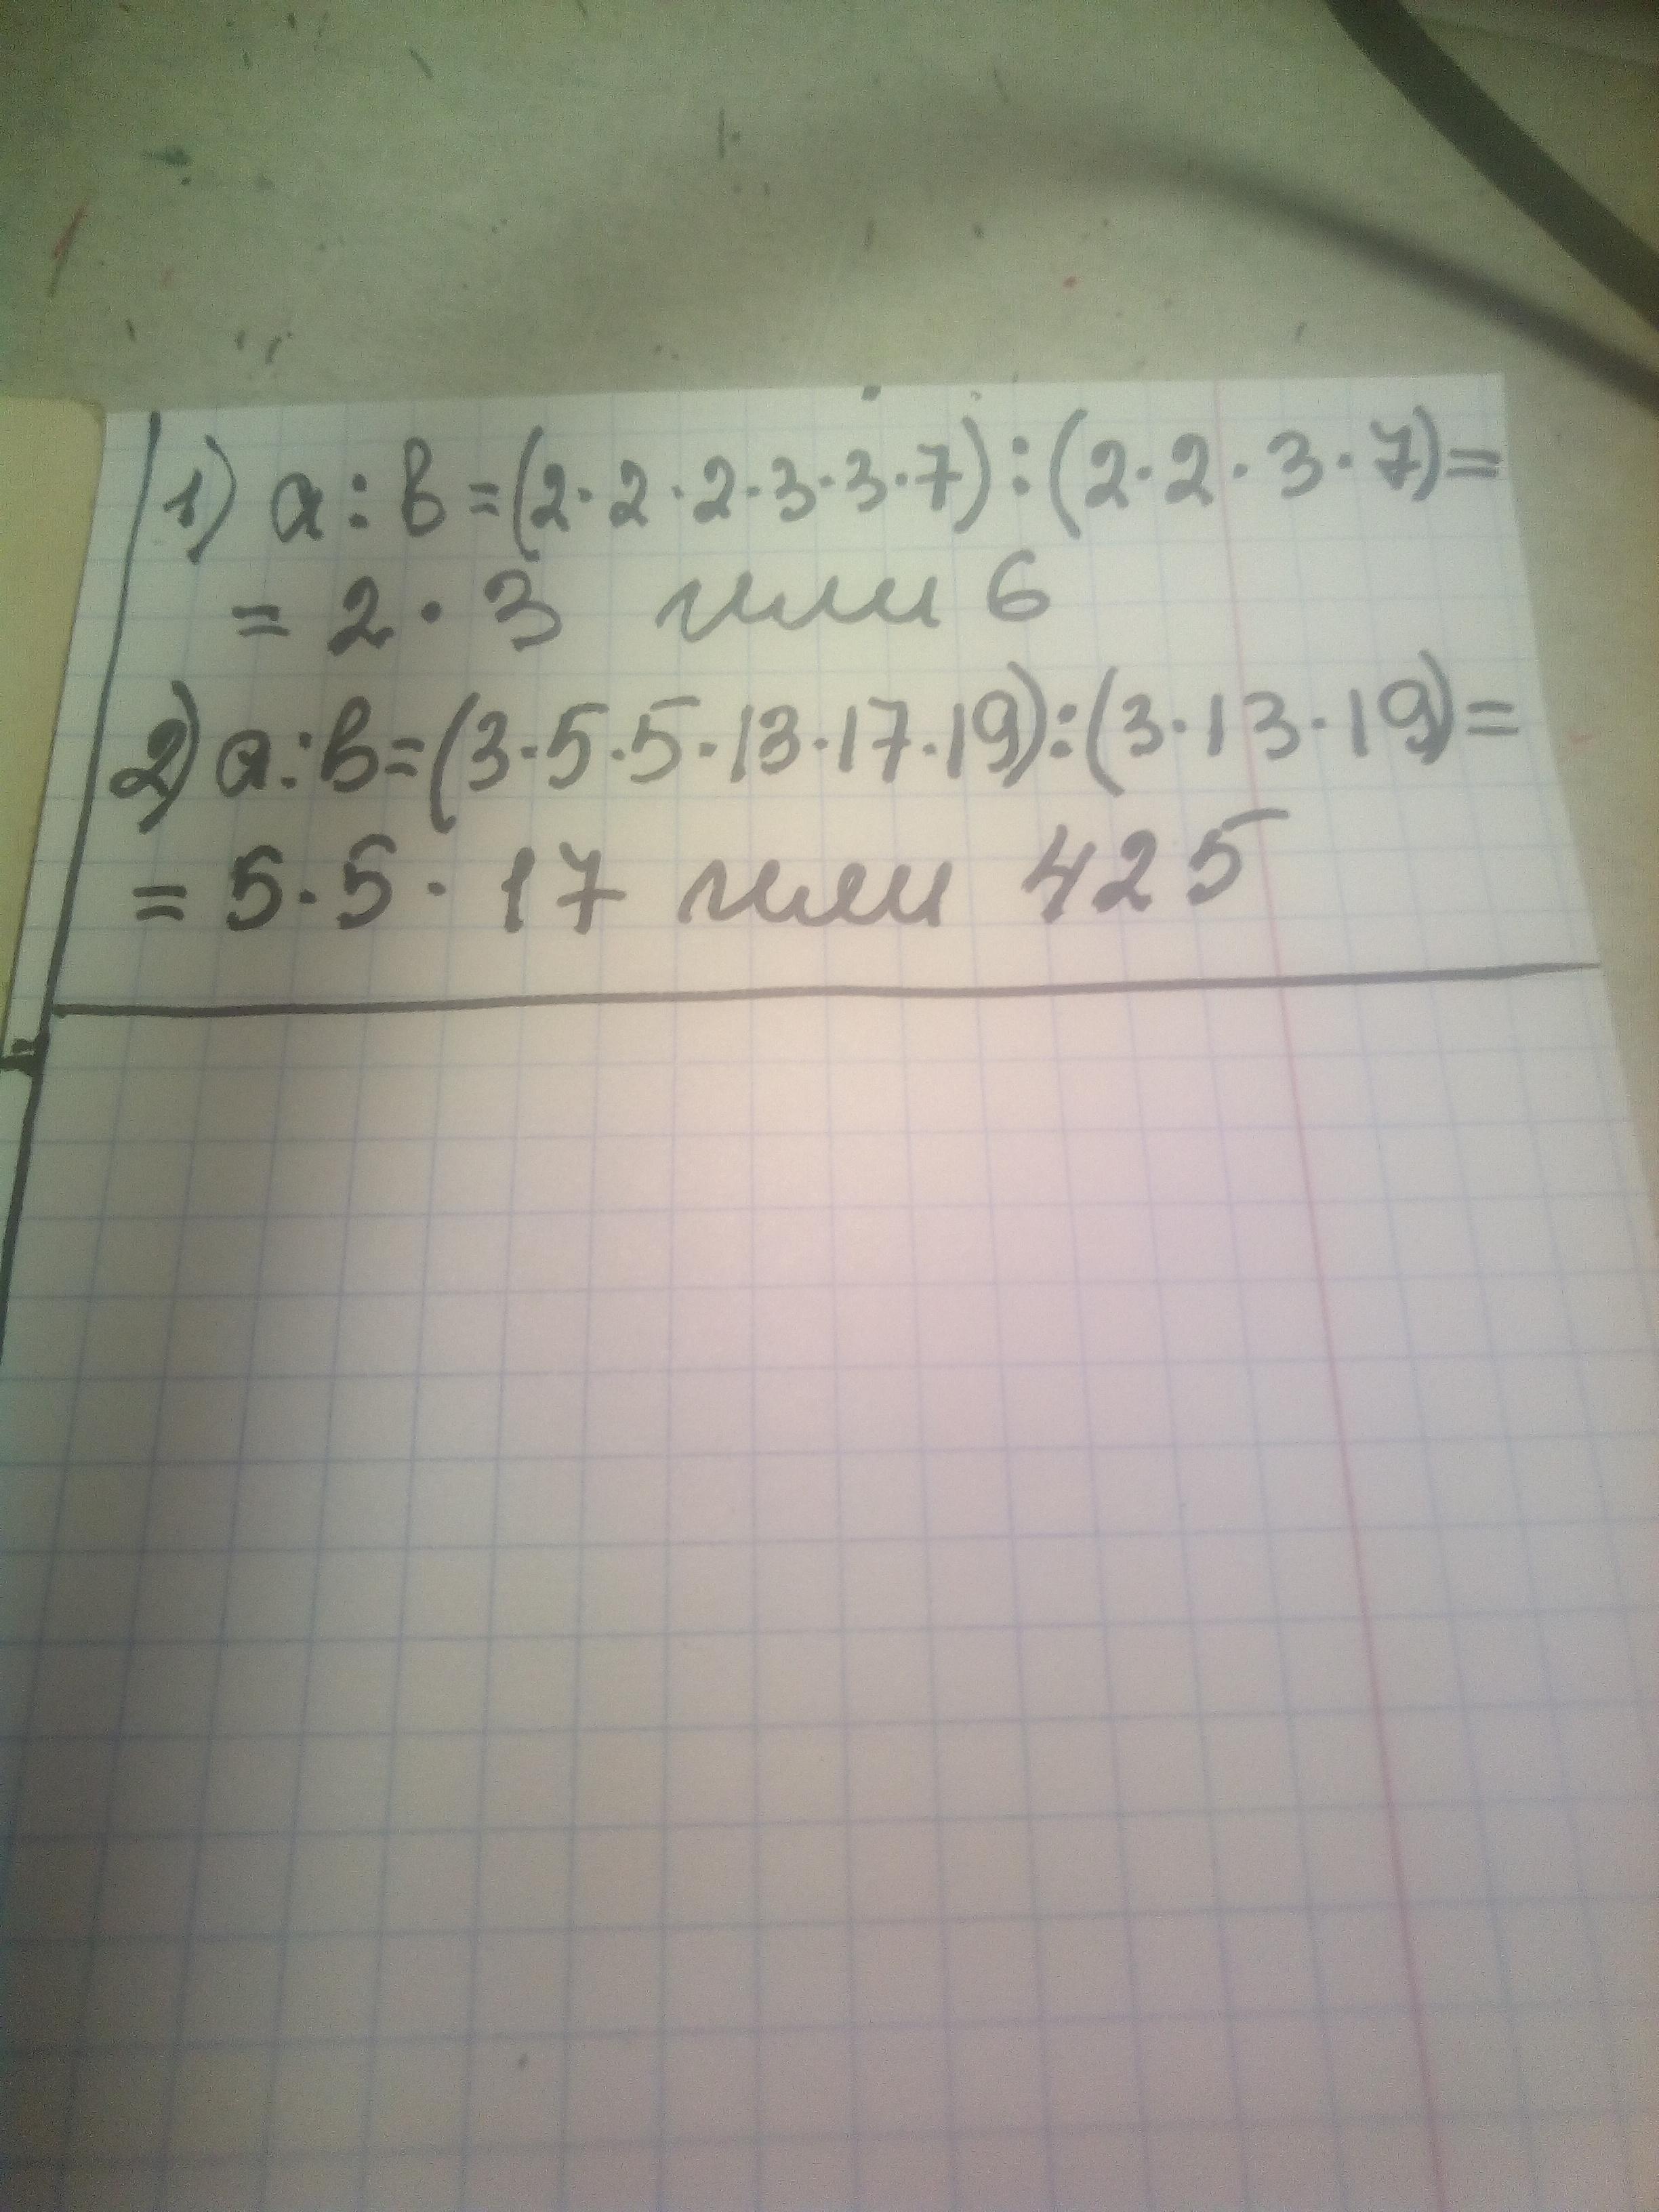 1) a : в = (2 · 2 · 2 · 3 · 3 · 7) : (2 · 2 · 3 · 7) =
= 2 · 3 или 6
2) a : в = (3 · 5 · 5 · 13 · 17 · 19) : (3 · 13 · 19) =
= 5 · 5 · 17 или 425